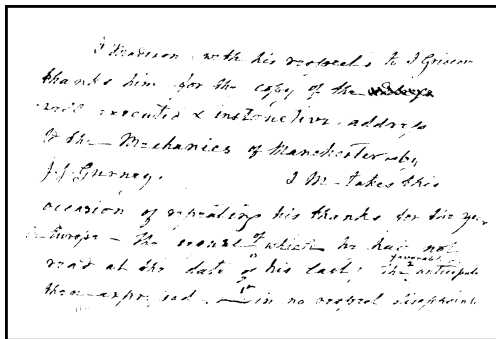 J Madison with his respects to J Griscom
thanks him for the copy of the
well executed & instructive address
to the Mechanics of Manchester by
J. J. Gurney. J M takes this
occasion of repeating his thanks for the year
in Europe - the whole of which he had not
read at the date of his last; the favorable anticipat
then expressed in no respect disappoint